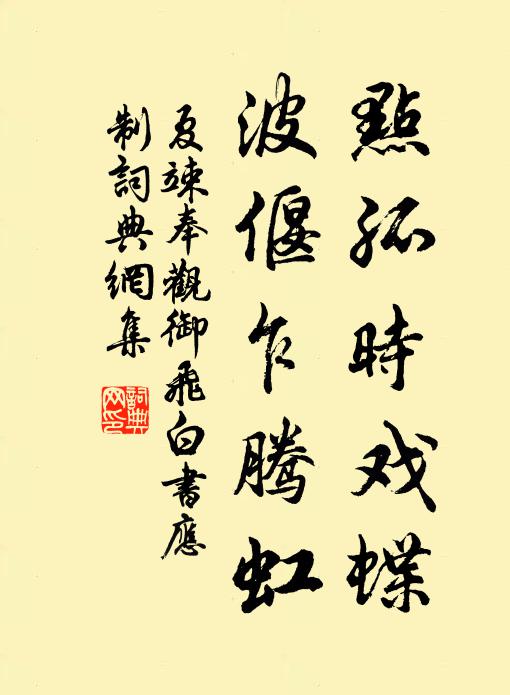 點孤時戏蝶
波偃乍騰虹
夏竦奉觀御飛白書應
制詞典網集
詞典
网印